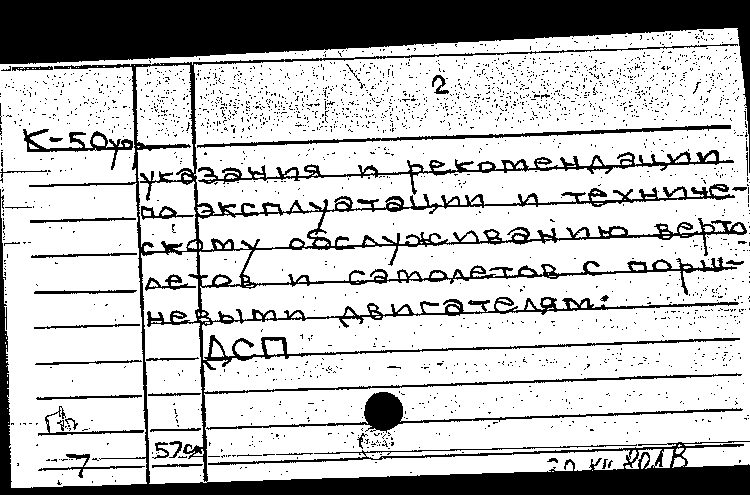 2
К-50уо
указания и рекомендации
по эксплуатации и техниче-
скому обслуживанию верто
летов и самолетов с порш-
невыми двигателям:
ДСП
7
57см